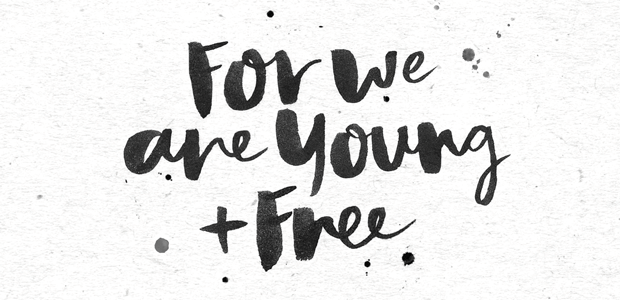 For we
are Young
+ Free